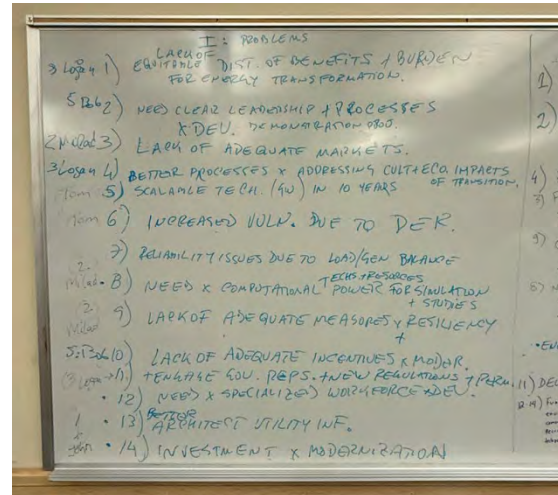 I: PROBLEMS
3 Logan 1) LACK OF EQUITABLE DIST. OF BENEFITS + BURDEN
FOR ENERGY TRANSFORMATION.
5 Bob 2) NEED CLEAR LEADERSHIP + PROCESSES
X DEV. DEMONSTRATION PROJ.
2 Milad 3) LACK OF ADEQUATE MARKETS.
3 Logan 4) BETTER PROCESSES X ADDRESSING CULT + ECO. IMPACTS
OF TRANSITION.
Tom 5) SCALABLE TECH. (GW) IN 10 YEARS
Tom 6) INCREASED VULN. DUE TO DER.
7) RELIABILITY ISSUES DUE TO LOAD/GEN BALANCE
2. Milad 8) NEED X COMPUTATIONAL TECHS + RESOURCES POWER FOR SIMULATION
+ STUDIES
2. Milad 9) LACK OF ADEQUATE MEASURES X RESILIENCY
+
5: Bob 10) LACK OF ADEQUATE INCENTIVES X MODER.
(3 Logan → 11) + ENGAGE GOV. REPS. + NEW REGULATIONS + PERM.
• 12) NEED X SPECIALIZED WORKFORCE X DEV.
1 • 13) BETTER ARCHITECT UTILITY INF.
+
John • 14) INVESTMENT X MODERNIZATION
1)
2)
4)
5)
6)
• EN
11) DEC
12-14)